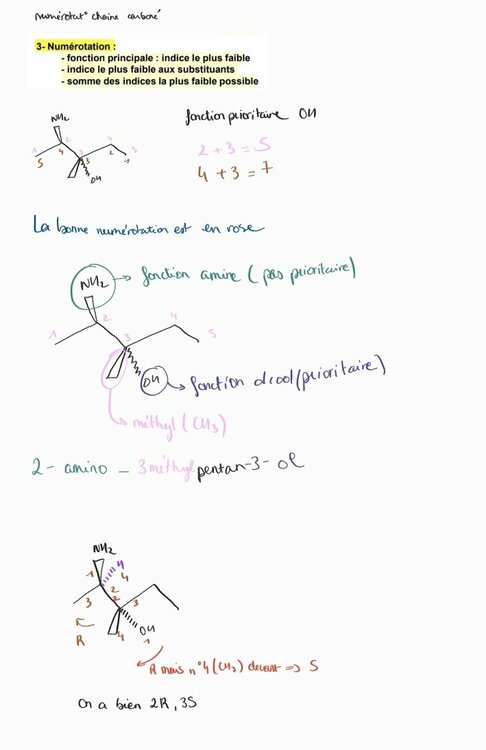 numérotat° chaine carboné
3- Numérotation :
- fonction principale : indice le plus faible
- indice le plus faible aux substituants
- somme des indices la plus faible possible
NH2
fonction prioritaire OH
1 2 3 4 5
5 4 3 2 1
OH
2 + 3 = 5
4 + 3 = 7
La bonne numérotation est en rose
NH2 → fonction amine (pas prioritaire)
1 2 3 4 5
OH → fonction alcool (prioritaire)
méthyl (CH3)
2 - amino - 3 méthyl pentan-3- ol
NH2
1 H 4
2
3 2 3
R 4 OH
1
R mais n°4 (CH3) devant => S
On a bien 2R, 3S